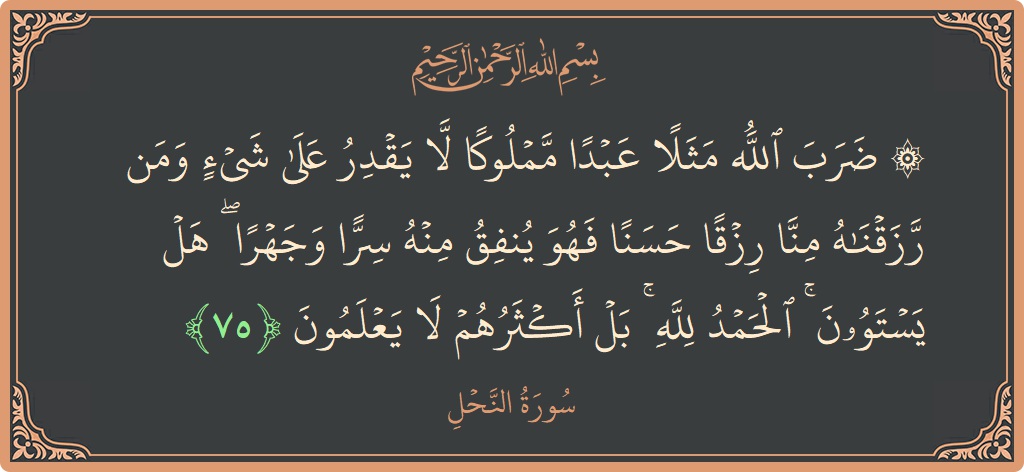 بِسْمِ اللَّهِ الرَّحْمَٰنِ الرَّحِيمِ
۞ ضَرَبَ ٱللَّهُ مَثَلًا عَبْدًا مَّمْلُوكًا لَّا يَقْدِرُ عَلَىٰ شَىْءٍ وَمَن
رَّزَقْنَـٰهُ مِنَّا رِزْقًا حَسَنًا فَهُوَ يُنفِقُ مِنْهُ سِرًّا وَجَهْرًا ۖ هَلْ
يَسْتَوُۥنَ ۚ ٱلْحَمْدُ لِلَّهِ ۚ بَلْ أَكْثَرُهُمْ لَا يَعْلَمُونَ ﴿٧٥﴾
سُورَةُ النَّحْلِ